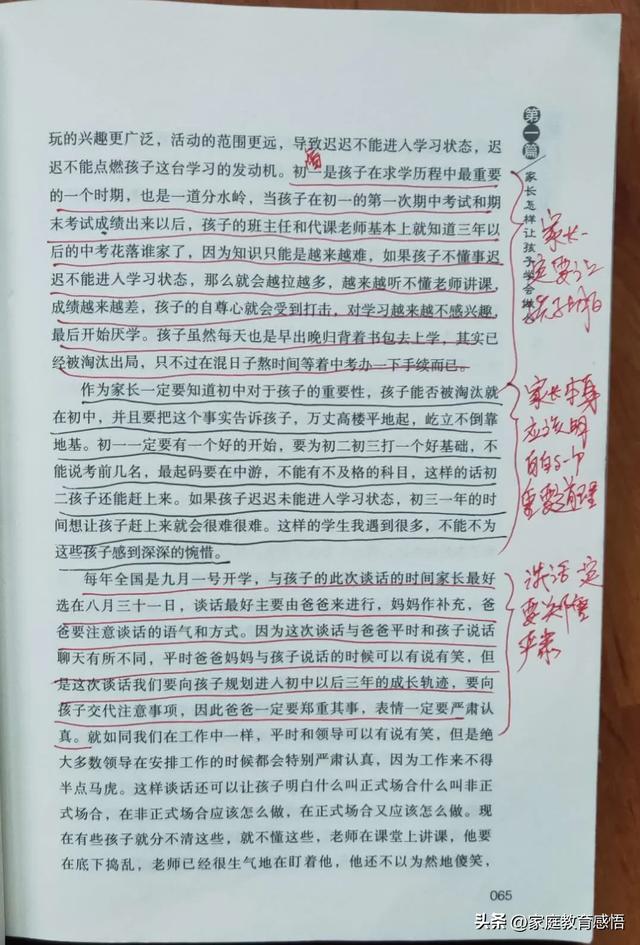 玩的兴趣更广泛，活动的范围更远，导致迟迟不能进入学习状态，迟
迟不能点燃孩子这台学习的发动机。初一是孩子在求学历程中最重要
的一个时期，也是一道分水岭，当孩子在初一的第一次期中考试和期
末考试成绩出来以后，孩子的班主任和代课老师基本上就知道三年以
后的中考花落谁家了，因为知识只能是越来越难，如果孩子不懂事迟
迟不能进入学习状态，那么就会越拉越多，越来越听不懂老师讲课，
成绩越来越差，孩子的自尊心就会受到打击，对学习越来越不感兴趣，
最后开始厌学。孩子虽然每天也是早出晚归背着书包去上学，其实已
经被淘汰出局，只不过在混日子熬时间等着中考办一下手续而已。
作为家长一定要知道初中对于孩子的重要性，孩子能否被淘汰就
在初中，并且要把这个事实告诉孩子，万丈高楼平地起，屹立不倒靠
地基。初一一定要有一个好的开始，要为初二初三打一个好基础，不
能说考前几名，最起码要在中游，不能有不及格的科目，这样的话初
二孩子还能赶上来。如果孩子迟迟未能进入学习状态，初三一年的时
间想让孩子赶上来就会很难很难。这样的学生我遇到很多，不能不为
这些孩子感到深深的惋惜。
每年全国是九月一号开学，与孩子的此次谈话的时间家长最好
选在八月三十一日，谈话最好主要由爸爸来进行，妈妈作补充，爸
爸要注意谈话的语气和方式。因为这次谈话与爸爸平时和孩子说话
聊天有所不同，平时爸爸妈妈与孩子说话的时候可以有说有笑，但
是这次谈话我们要向孩子规划进入初中以后三年的成长轨迹，要向
孩子交代注意事项，因此爸爸一定要郑重其事，表情一定要严肃认
真。就如同我们在工作中一样，平时和领导可以有说有笑，但是绝
大多数领导在安排工作的时候都会特别严肃认真，因为工作来不得
半点马虎。这样谈话还可以让孩子明白什么叫正式场合什么叫非正
式场合，在非正式场合应该怎么做，在正式场合又应该怎么做。现
在有些孩子就分不清这些，就不懂这些，老师在课堂上讲课，他要
在底下捣乱，老师已经很生气地在盯着他，他还不以为然地傻笑，
第一篇
家长怎样让孩子学会
家长一
定要让
孩子明白
家长本身
应该明
白这个
重要道理
谈话一定
要郑重
严肃
065
头条 @家庭教育感悟